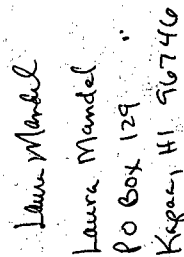 Laura Mandel
Laura Mandel
PO Box 129
Kapaa, HI 96746